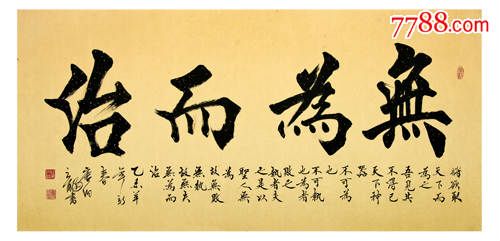 7788.com
無為而治
將欲取
天下而
為之
吾見其
不得已
天下神
器
不可為
不可執
也為者
敗之
執者失
之是以
聖人無
為
故無敗
無執
故無失
無為而
治
乙未羊
年
春
書